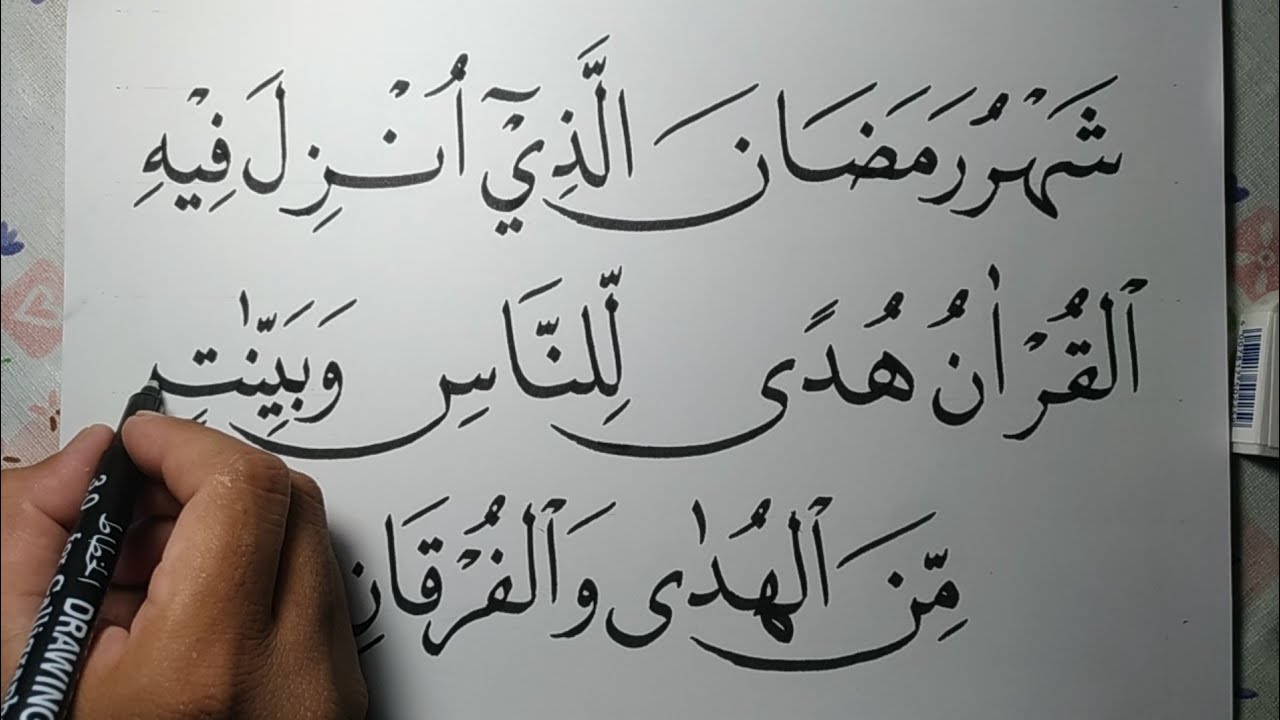 شَهْرُ رَمَضَانَ الَّذِيْٓ أُنْزِلَ فِيْهِ
ٱلْقُرْاٰنُ هُدًى لِّلنَّاسِ وَبَيِّنٰتٍ
مِّنَ ٱلْهُدٰى وَٱلْفُرْقَانِ
الخطاط
DRAWING